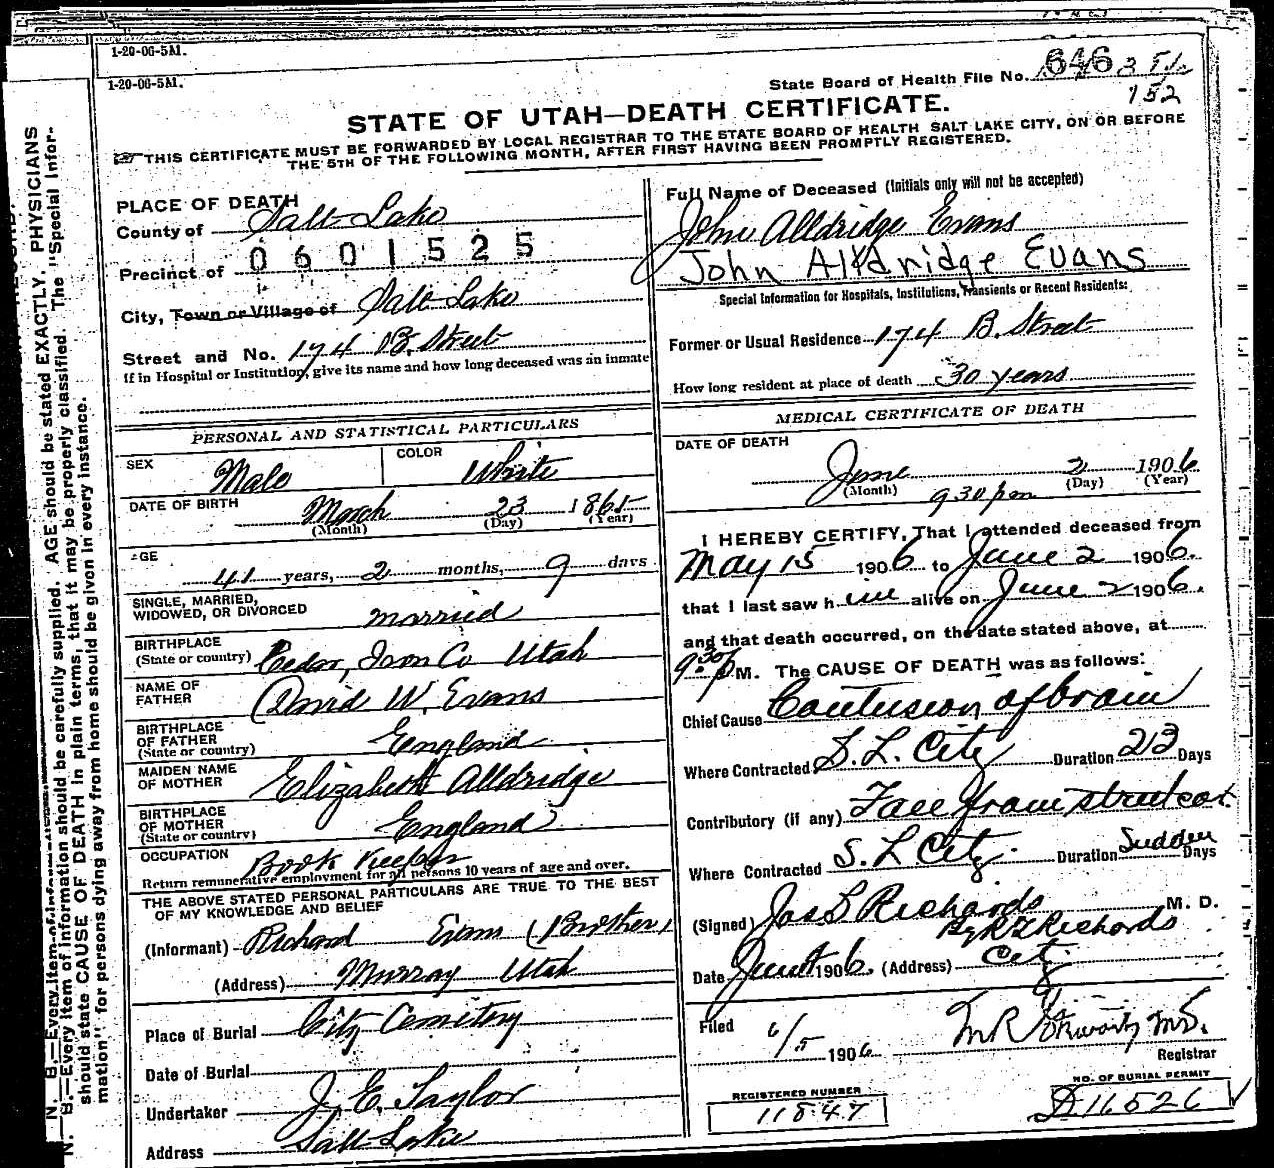 1-20-06-5M.
1-20-06-5M.
State Board of Health File No. 646
152
STATE OF UTAH—DEATH CERTIFICATE.
THIS CERTIFICATE MUST BE FORWARDED BY LOCAL REGISTRAR TO THE STATE BOARD OF HEALTH SALT LAKE CITY, ON OR BEFORE
THE 5TH OF THE FOLLOWING MONTH, AFTER FIRST HAVING BEEN PROMPTLY REGISTERED.
PLACE OF DEATH
County of Salt Lake
Precinct of 0601525
City, Town or Village of Salt Lake
Street and No. 174 B. Street
If in Hospital or Institution, give its name and how long deceased was an inmate
PERSONAL AND STATISTICAL PARTICULARS
SEX Male COLOR White
DATE OF BIRTH March 23 1865
(Month) (Day) (Year)
AGE
41 years, 2 months, 9 days
SINGLE, MARRIED,
WIDOWED, OR DIVORCED married
BIRTHPLACE
(State or country) Cedar, Iron Co Utah
NAME OF
FATHER David W. Evans
BIRTHPLACE
OF FATHER
(State or country) England
MAIDEN NAME
OF MOTHER Elizabeth Alldridge
BIRTHPLACE
OF MOTHER
(State or country) England
OCCUPATION Book Keeper
Return remunerative employment for all persons 10 years of age and over.
THE ABOVE STATED PERSONAL PARTICULARS ARE TRUE TO THE BEST
OF MY KNOWLEDGE AND BELIEF
(Informant) Richard Evans (Brother)
(Address) Murray Utah
Place of Burial City Cemetery
Date of Burial
Undertaker J. E. Taylor
Address Salt Lake
Full Name of Deceased (Initials only will not be accepted)
John Alldridge Evans
John Alldridge Evans
Special Information for Hospitals, Institutions, Transients or Recent Residents:
Former or Usual Residence 174 B. Street
How long resident at place of death 30 years
MEDICAL CERTIFICATE OF DEATH
DATE OF DEATH
June 2 1906
(Month) (Day) (Year)
9 30 pm
I HEREBY CERTIFY, That I attended deceased from
May 15 1906 to June 2 1906.
that I last saw him alive on June 2 1906.
and that death occurred, on the date stated above, at
9:30 p M. The CAUSE OF DEATH was as follows:
Chief Cause Contusion of brain
Where Contracted S. L. City Duration 23 Days
Contributory (if any) Fall from street car.
Where Contracted S. L City. Duration Sudden Days
(Signed) Jas S Richards M. D.
Richards
Date June 1906. (Address) City
Filed 6/5 1906 M.D.
Registrar
REGISTERED NUMBER
11847
NO. OF BURIAL PERMIT
D 16526
N. B.—Every item of information should be carefully supplied. AGE should be stated EXACTLY, PHYSICIANS
should state CAUSE OF DEATH in plain terms, that it may be properly classified. The "Special Infor-
mation" for persons dying away from home should be given in every instance.